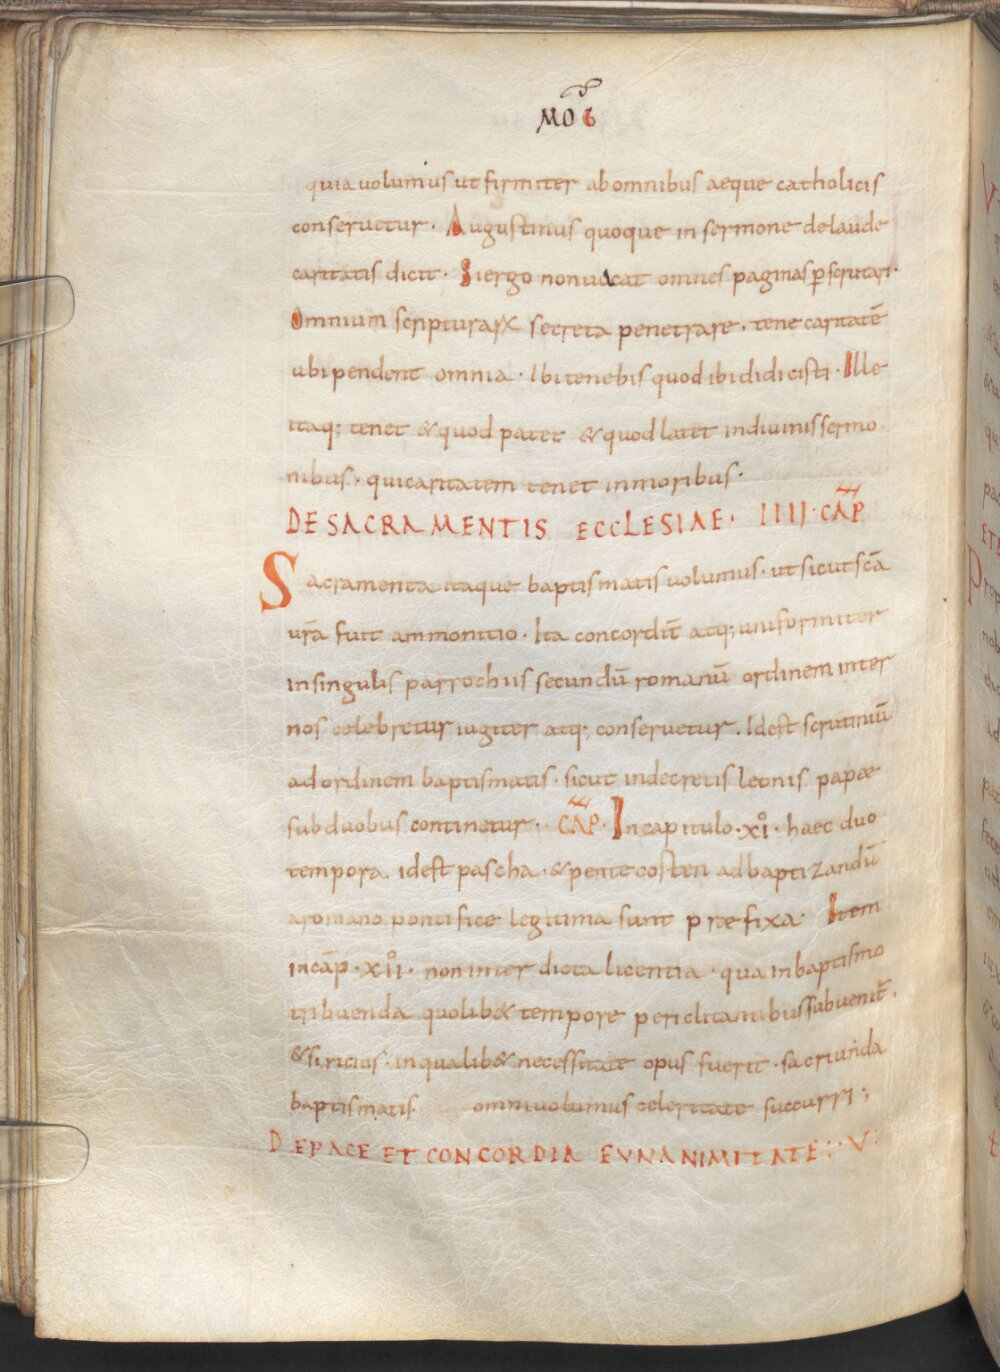 quia volumus ut firmiter ab omnibus aeque catholicis
conseruetur · Augustinus quoque in sermone de laude
caritatis dicit · Si ergo non uacat omnes paginas ꝑscrutari ·
Omnium scripturaꝝ secreta penetrare · tene caritatē
ubi pendent omnia · Ibi tenebis quod ibi didicisti · Ille
itaq; tenet & quod patet & quod latet in diuinis sermo
nibus · qui caritatem tenet in moribus ·
DE SACRAMENTIS ECCLESIAE · IIII · CAP
Sacramenta itaque baptismatis uolumus · ut sicut sc̄a
ur̄a fuit ammonitio · Ita concordit̄ atq; uniformiter
in singulis parrochiis secundū romanū ordinem inter
nos celebretur iugiter atq; conseruetur · Id est scrutiniū
ad ordinem baptismatis · sicut in decretis leonis papae
sub duobus continetur · CAP · In capitulo · xi° · haec duo
tempora · id est pascha · & pentecosten ad baptizandū
a romano pontifice legitima sunt praefixa · Item
in cap̄ · xii° · non interdicta licentia · qua in baptismo
tribuenda quolib& tempore periclitantibus subuenit̄ ·
& siricius · in qualib& necessitate opus fuerit · sacri unda
baptismatis omni uolumus celeritate succurri ;
DE PACE ET CONCORDIA E VNANIMITATE : · V